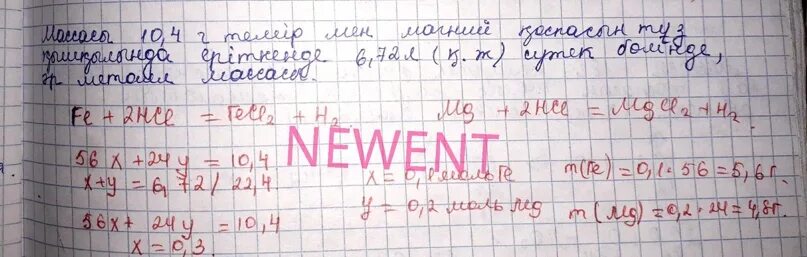 Массасы 10,4 г темір мен магний қоспасын тұз
қышқылында еріткенде 6,72 л (қ.ж) сутек бөлінде,
әр металл массасы.
Fe + 2HCl = FeCl₂ + H₂. Mg + 2HCl = MgCl₂ + H₂.
NEWENT
56x + 24y = 10,4
x + y = 6,72 / 22,4
x = 0,1 моль Fe m(Fe) = 0,1 · 56 = 5,6 г.
56x + 24y = 10,4
x = 0,3
y = 0,2 моль Mg m(Mg) = 0,2 · 24 = 4,8 г.